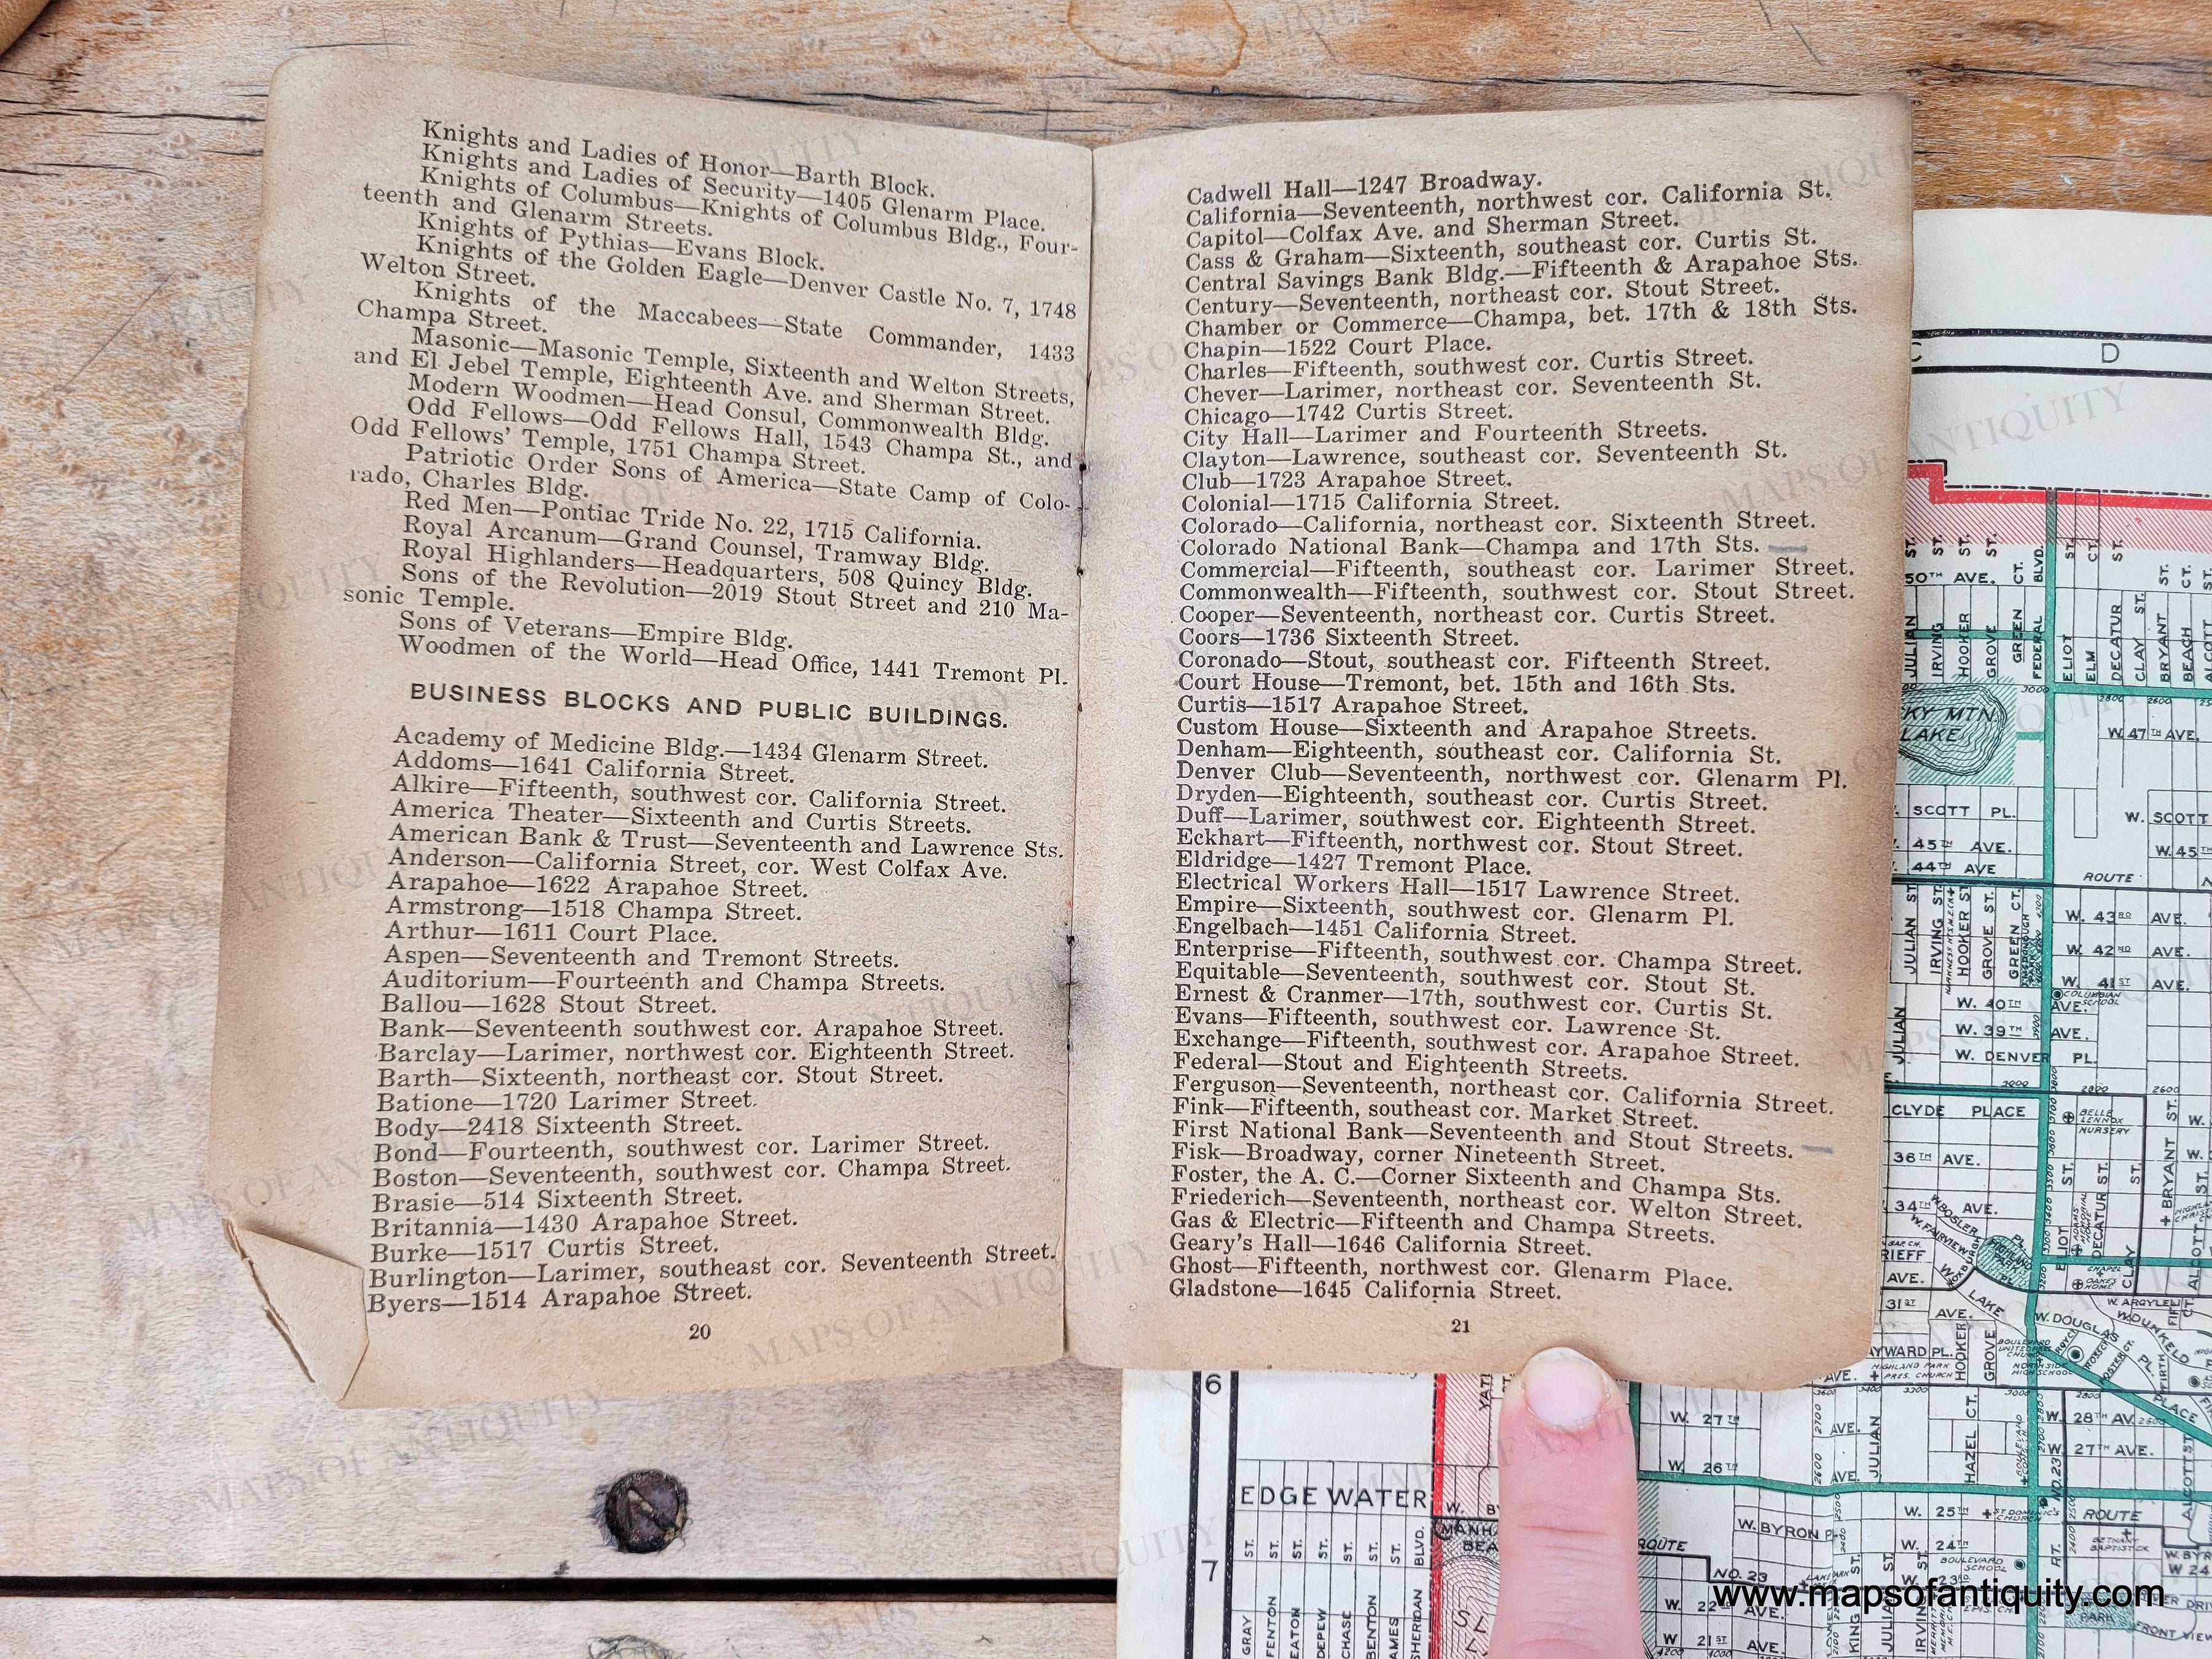 Knights and Ladies of Honor—Barth Block.
Knights and Ladies of Security—1405 Glenarm Place.
Knights of Columbus—Knights of Columbus Bldg., Four-
teenth and Glenarm Streets.
Knights of Pythias—Evans Block.
Knights of the Golden Eagle—Denver Castle No. 7, 1748
Welton Street.
Knights of the Maccabees—State Commander, 1433
Champa Street.
Masonic—Masonic Temple, Sixteenth and Welton Streets,
and El Jebel Temple, Eighteenth Ave. and Sherman Street.
Modern Woodmen—Head Consul, Commonwealth Bldg.
Odd Fellows—Odd Fellows Hall, 1543 Champa St., and
Odd Fellows' Temple, 1751 Champa Street.
Patriotic Order Sons of America—State Camp of Colo-
rado, Charles Bldg.
Red Men—Pontiac Tride No. 22, 1715 California.
Royal Arcanum—Grand Counsel, Tramway Bldg.
Royal Highlanders—Headquarters, 508 Quincy Bldg.
Sons of the Revolution—2019 Stout Street and 210 Ma-
sonic Temple.
Sons of Veterans—Empire Bldg.
Woodmen of the World—Head Office, 1441 Tremont Pl.
BUSINESS BLOCKS AND PUBLIC BUILDINGS.
Academy of Medicine Bldg.—1434 Glenarm Street.
Addoms—1641 California Street.
Alkire—Fifteenth, southwest cor. California Street.
America Theater—Sixteenth and Curtis Streets.
American Bank & Trust—Seventeenth and Lawrence Sts.
Anderson—California Street, cor. West Colfax Ave.
Arapahoe—1622 Arapahoe Street.
Armstrong—1518 Champa Street.
Arthur—1611 Court Place.
Aspen—Seventeenth and Tremont Streets.
Auditorium—Fourteenth and Champa Streets.
Ballou—1628 Stout Street.
Bank—Seventeenth southwest cor. Arapahoe Street.
Barclay—Larimer, northwest cor. Eighteenth Street.
Barth—Sixteenth, northeast cor. Stout Street.
Batione—1720 Larimer Street.
Body—2418 Sixteenth Street.
Bond—Fourteenth, southwest cor. Larimer Street.
Boston—Seventeenth, southwest cor. Champa Street.
Brasie—514 Sixteenth Street.
Britannia—1430 Arapahoe Street.
Burke—1517 Curtis Street.
Burlington—Larimer, southeast cor. Seventeenth Street.
Byers—1514 Arapahoe Street.
20
Cadwell Hall—1247 Broadway.
California—Seventeenth, northwest cor. California St.
Capitol—Colfax Ave. and Sherman Street.
Cass & Graham—Sixteenth, southeast cor. Curtis St.
Central Savings Bank Bldg.—Fifteenth & Arapahoe Sts.
Century—Seventeenth, northeast cor. Stout Street.
Chamber or Commerce—Champa, bet. 17th & 18th Sts.
Chapin—1522 Court Place.
Charles—Fifteenth, southwest cor. Curtis Street.
Chever—Larimer, northeast cor. Seventeenth St.
Chicago—1742 Curtis Street.
City Hall—Larimer and Fourteenth Streets.
Clayton—Lawrence, southeast cor. Seventeenth St.
Club—1723 Arapahoe Street.
Colonial—1715 California Street.
Colorado—California, northeast cor. Sixteenth Street.
Colorado National Bank—Champa and 17th Sts.
Commercial—Fifteenth, southeast cor. Larimer Street.
Commonwealth—Fifteenth, southwest cor. Stout Street.
Cooper—Seventeenth, northeast cor. Curtis Street.
Coors—1736 Sixteenth Street.
Coronado—Stout, southeast cor. Fifteenth Street.
Court House—Tremont, bet. 15th and 16th Sts.
Curtis—1517 Arapahoe Street.
Custom House—Sixteenth and Arapahoe Streets.
Denham—Eighteenth, southeast cor. California St.
Denver Club—Seventeenth, northwest cor. Glenarm Pl.
Dryden—Eighteenth, southeast cor. Curtis Street.
Duff—Larimer, southwest cor. Eighteenth Street.
Eckhart—Fifteenth, northwest cor. Stout Street.
Eldridge—1427 Tremont Place.
Electrical Workers Hall—1517 Lawrence Street.
Empire—Sixteenth, southwest cor. Glenarm Pl.
Engelbach—1451 California Street.
Enterprise—Fifteenth, southwest cor. Champa Street.
Equitable—Seventeenth, southwest cor. Stout St.
Ernest & Cranmer—17th, southwest cor. Curtis St.
Evans—Fifteenth, southwest cor. Lawrence St.
Exchange—Fifteenth, southwest cor. Arapahoe Street.
Federal—Stout and Eighteenth Streets.
Ferguson—Seventeenth, northeast cor. California Street.
Fink—Fifteenth, southeast cor. Market Street.
First National Bank—Seventeenth and Stout Streets.
Fisk—Broadway, corner Nineteenth Street.
Foster, the A. C.—Corner Sixteenth and Champa Sts.
Friederich—Seventeenth, northeast cor. Welton Street.
Gas & Electric—Fifteenth and Champa Streets.
Geary's Hall—1646 California Street.
Ghost—Fifteenth, northwest cor. Glenarm Place.
Gladstone—1645 California Street.
21
D
50TH AVE.
JULIAN ST.
IRVING ST.
HOOKER ST.
GROVE ST.
GREEN CT.
FEDERAL BLVD.
ELIOT ST.
ELM CT.
DECATUR ST.
CLAY ST.
BRYANT ST.
BEACH CT.
ALCOTT
MTN.
LAKE
W. 47TH AVE.
SCOTT PL.
W. SCOTT
45TH AVE.
W. 45TH
44TH AVE
ROUTE
W. 43RD AVE.
W. 42ND AVE.
W. 41ST AVE.
COLUMBIAN SCHOOL
W. 40TH AVE.
W. 39TH AVE.
W. DENVER PL.
CLYDE PLACE
BELLE LENNOX NURSERY
36TH AVE.
34TH AVE.
31ST AVE.
W. ARGYLE
W. DOUGLAS
W. DUNKELD
6
W. 27TH
W. 26TH
JULIAN
HAZEL CT.
W. 28TH AV.
W. 27TH AVE.
EDGEWATER
W. 25TH
ROUTE
W. BYRON PL.
W. 24TH
BOULEVARD SCHOOL
ROUTE
NO. 23
7
W. 22ND AVE.
W. 21ST AVE.
GRAY ST.
FENTON ST.
EATON ST.
DEPEW ST.
CHASE ST.
BENTON ST.
AMES ST.
SHERIDAN BLVD.
PARK
www.mapsofantiquity.com
MAPS OF ANTIQUITY